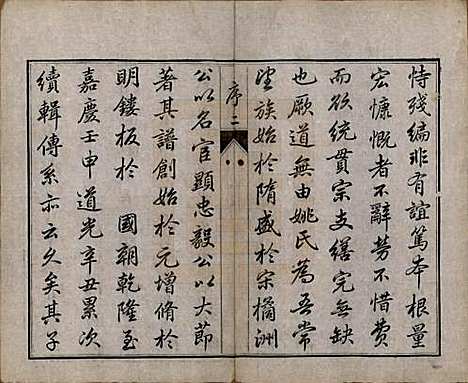 恃殘編非有誼篤本根量
宏慷慨者不辭勞不惜費
而欲統貫宗支繕完無缺
也厥道無由姚氏為吾常
望族始於隋盛於宋橘洲
序二
公以名宦顯忠毅公以大節
著其譜創始於元增脩於
明鏤板於 國朝乾隆至
嘉慶壬申道光辛丑累次
續輯傳系亦云久矣其子